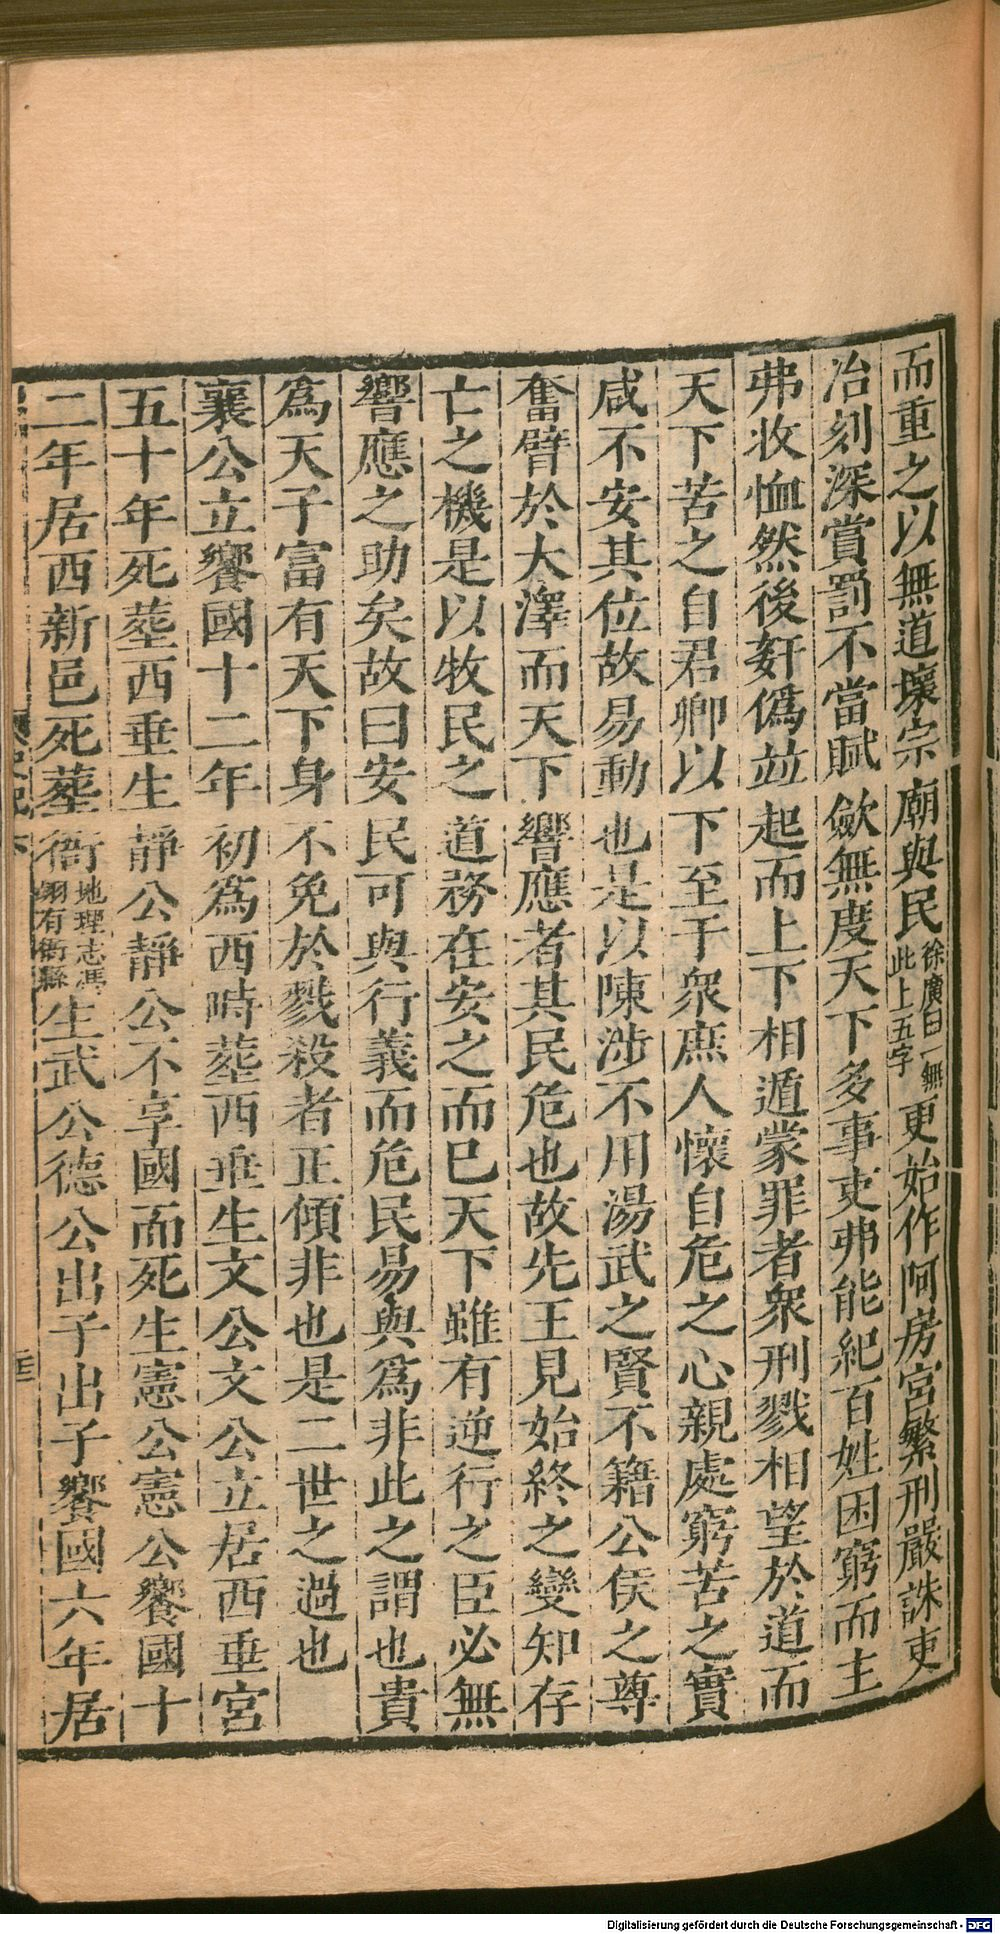 而重之以無道壞宗廟與民徐廣曰一無此上五字更始作阿房宮繁刑嚴誅吏
治刻深賞罰不當賦斂無度天下多事吏弗能紀百姓困窮而主
弗收恤然後姧僞並起而上下相遁蒙罪者衆刑戮相望於道而
天下苦之自君卿以下至于衆庶人懷自危之心親處窮苦之實
咸不安其位故易動也是以陳涉不用湯武之賢不籍公侯之尊
奮臂於大澤而天下響應者其民危也故先王見始終之變知存
亡之機是以牧民之道務在安之而已天下雖有逆行之臣必無
響應之助矣故曰安民可與行義而危民易與爲非此之謂也貴
爲天子富有天下身不免於戮殺者正傾非也是二世之過也
襄公立饗國十二年初爲西畤葬西垂生文公文公立居西垂宮
五十年死葬西垂生靜公靜公不享國而死生憲公憲公饗國十
二年居西新邑死葬衙地理志馮翊有衙縣生武公德公出子出子饗國六年居
Digitalisierung gefördert durch die Deutsche Forschungsgemeinschaft - DFG